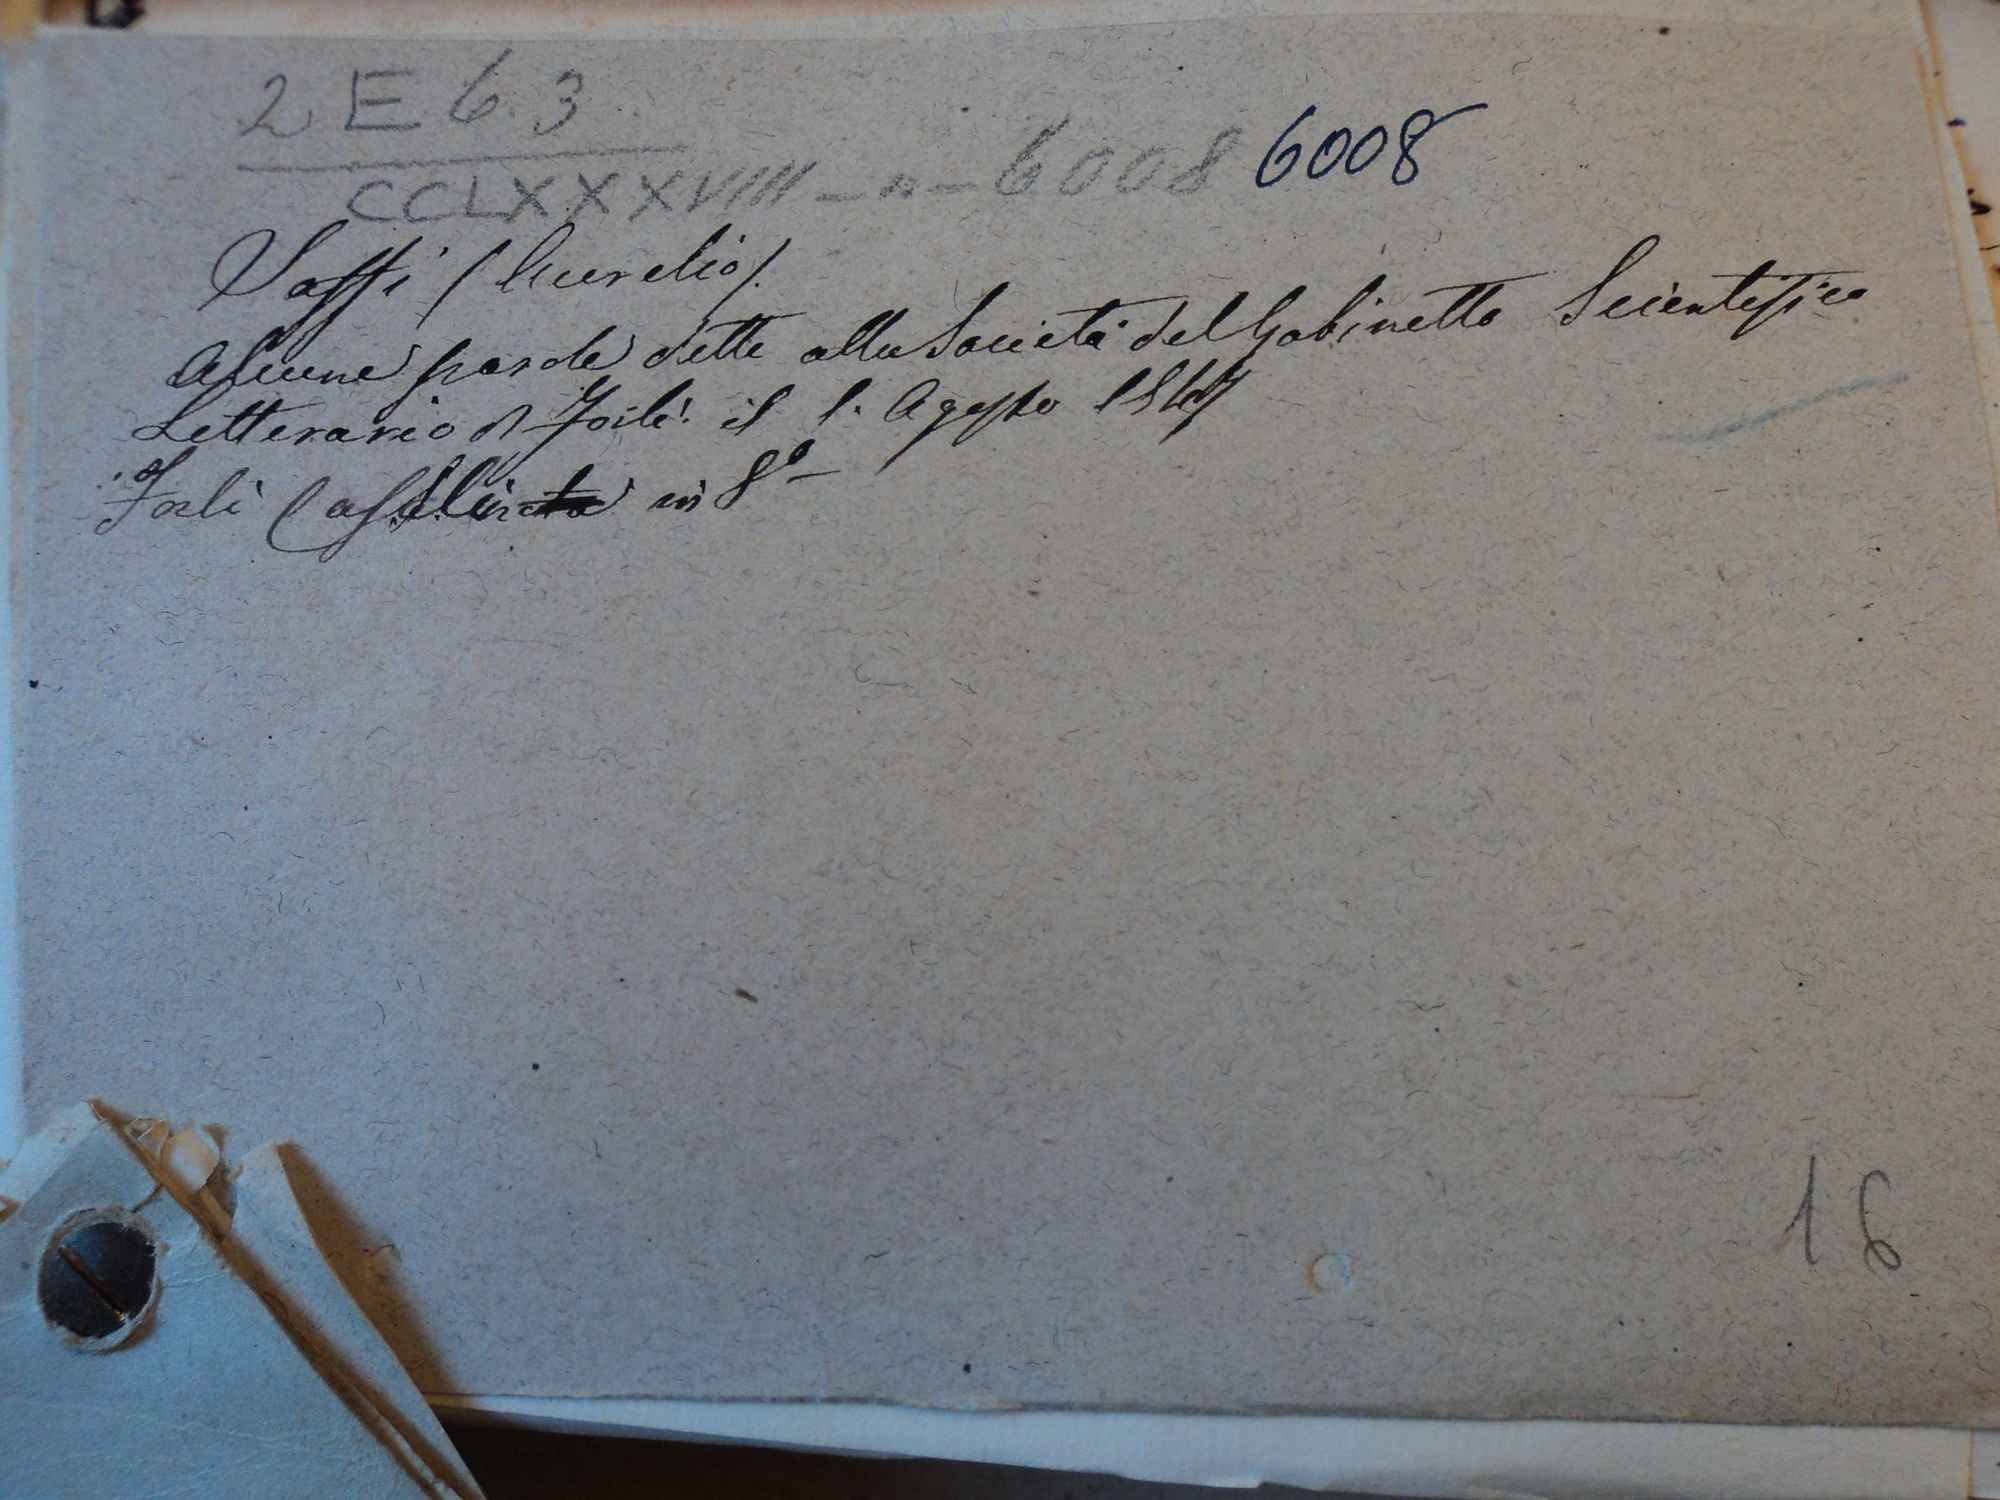 2 E 6. 3
CCLXXXVIII - n - 6008 6008
Saffi (Aurelio).
Alcune parole dette alla Società del Gabinetto Scientifico
Letterario di Forlì il 1. Agosto 1847
Forlì Casali in 8°
16